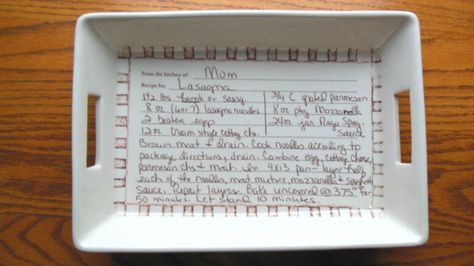 From the kitchen of: Mom
Recipe for: Lasagna
1 1/2 lbs Hamb or Sausg. 3/4 C grated parmesan
8 oz (6 or 7) lasagna noodles 8 oz pkg Mozzarella
2 beaten eggs 24 oz jar Ragu Spag.
12 oz cream style cottg chs. Sauce
Brown meat & drain. Cook noodles according to
package directions, drain. Combine egg, cottag chese,
parmesan chs & meat. In 9x13 pan - layer half
each of the noodles, meat mixture, mozzarella &
sauce. Repeat layers. Bake uncovered @ 375° to
50 minutes. Let stand 10 minutes.